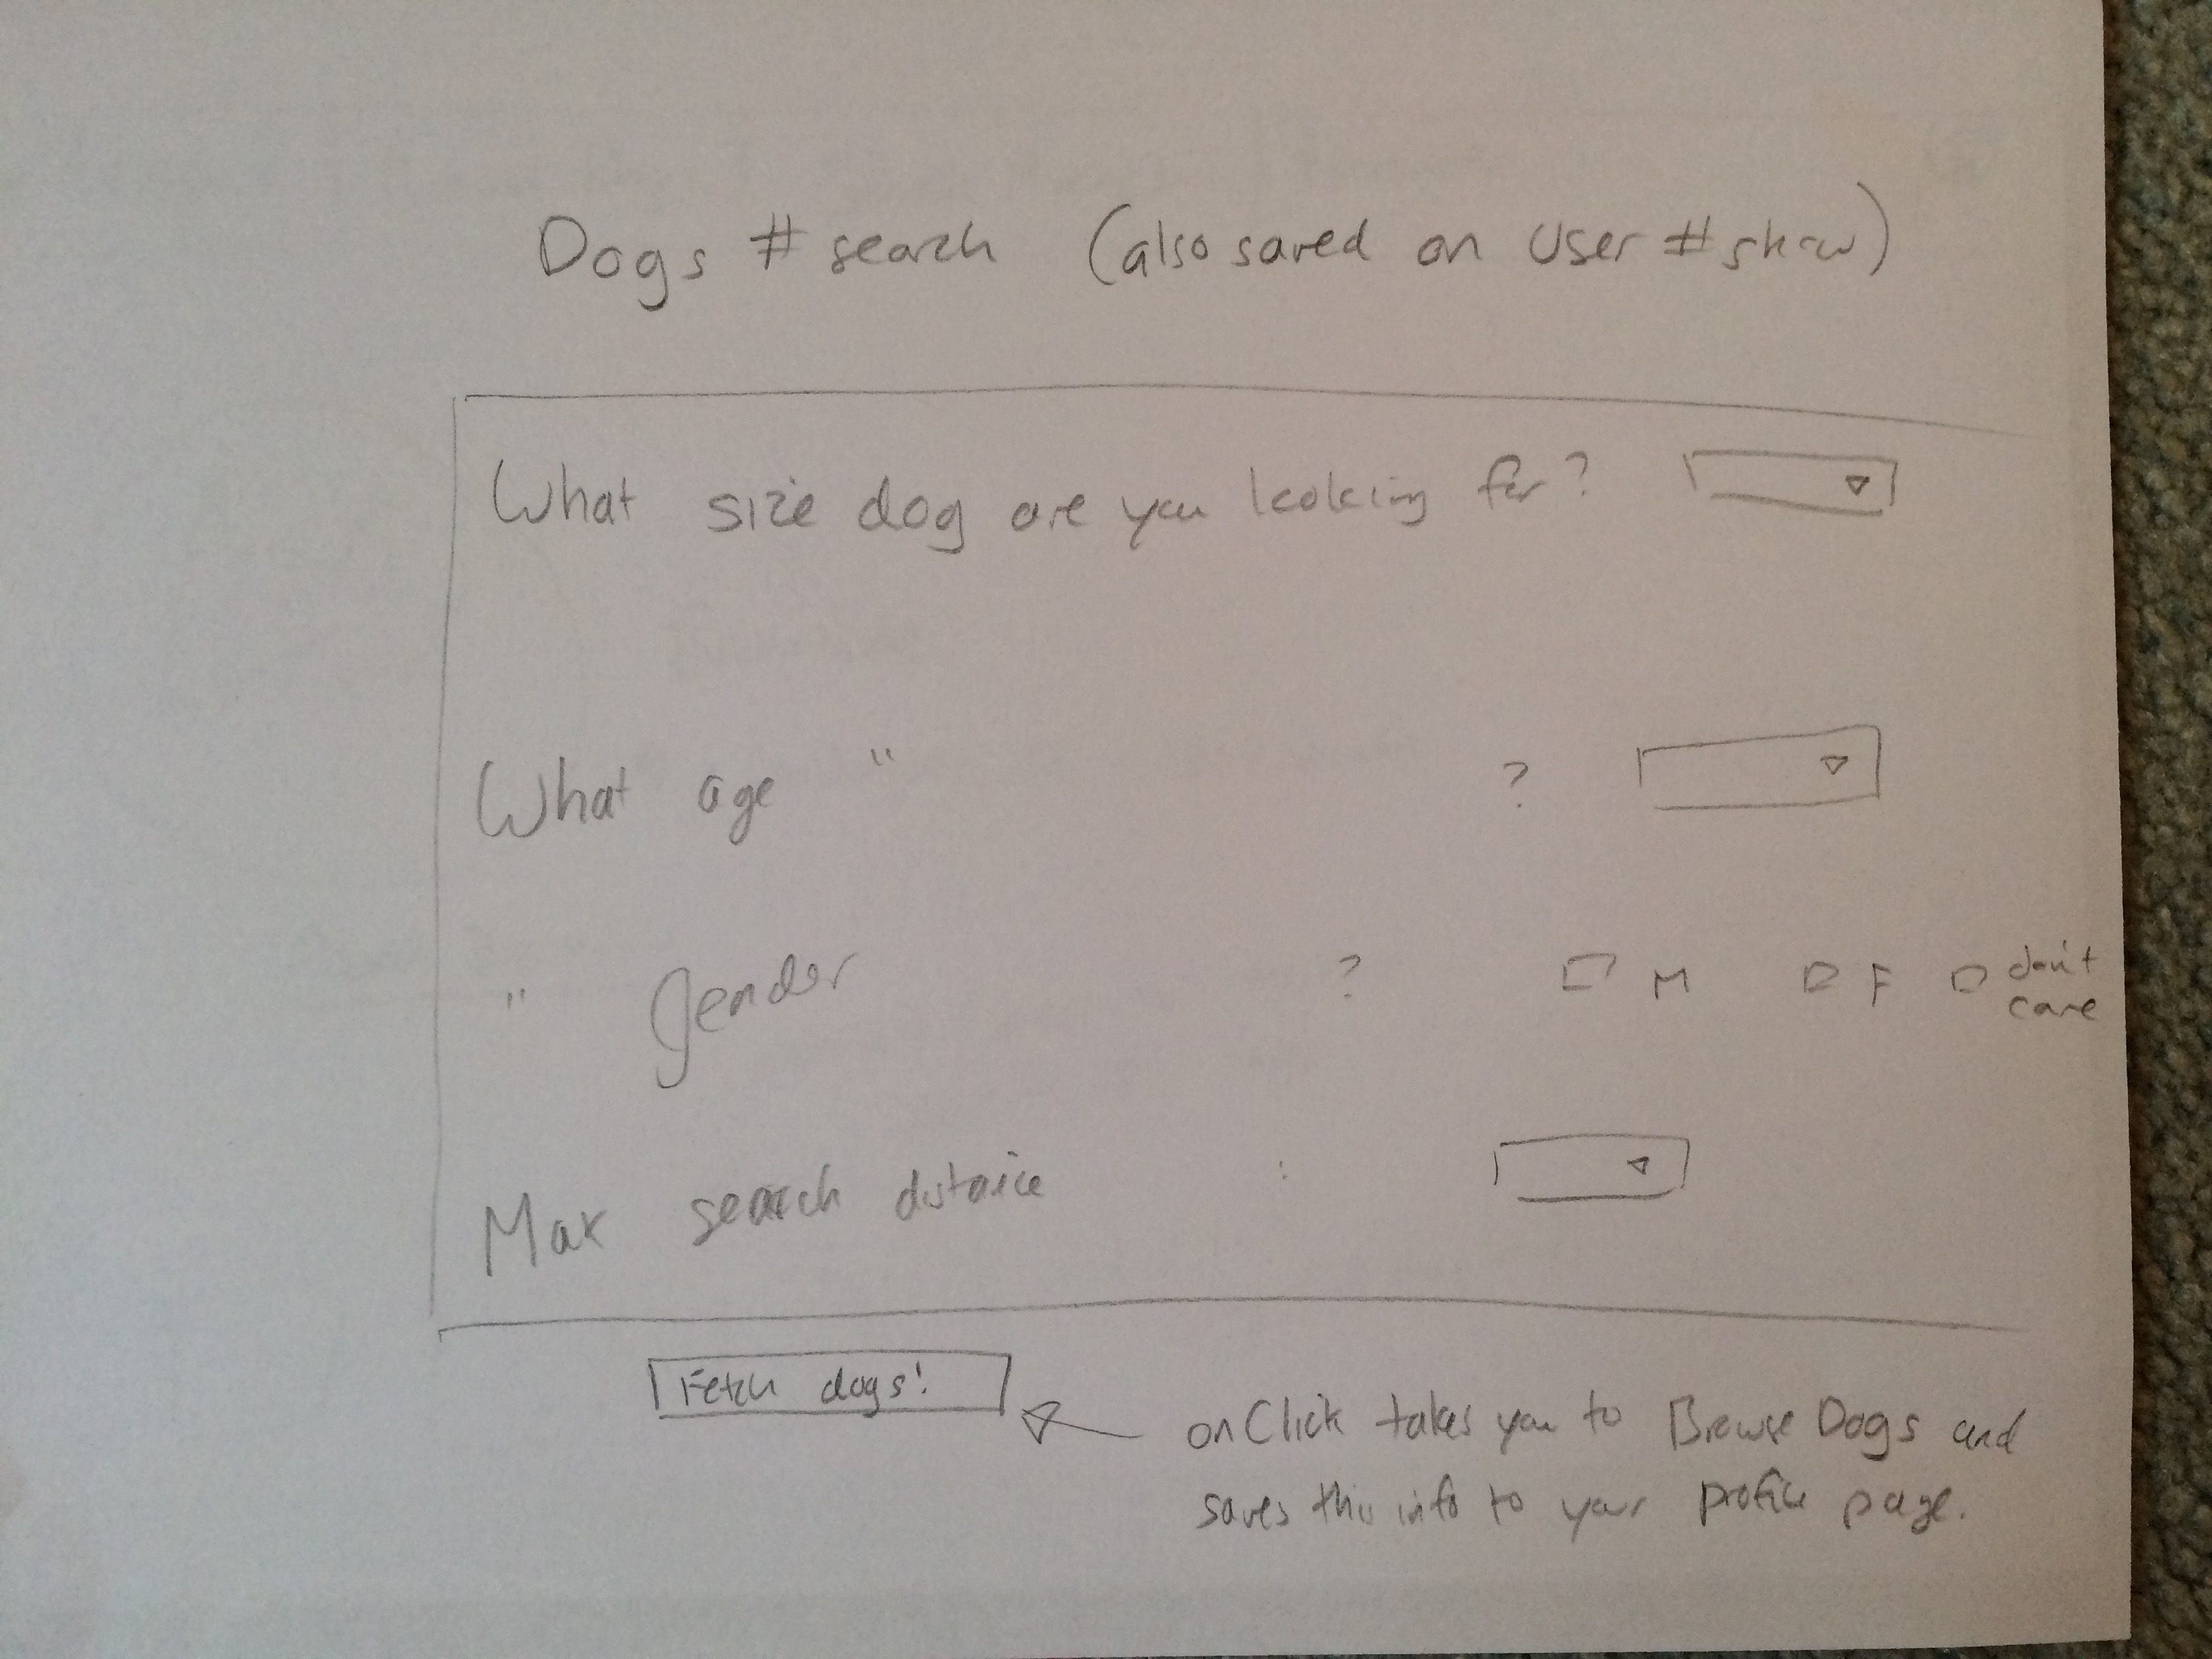 Dogs #search (also saved on User #show)
What size dog are you looking for?
What age " ?
" gender ? M F don't care
Max search distance :
Fetch dogs!
onClick takes you to Browse Dogs and
saves this info to your profile page.